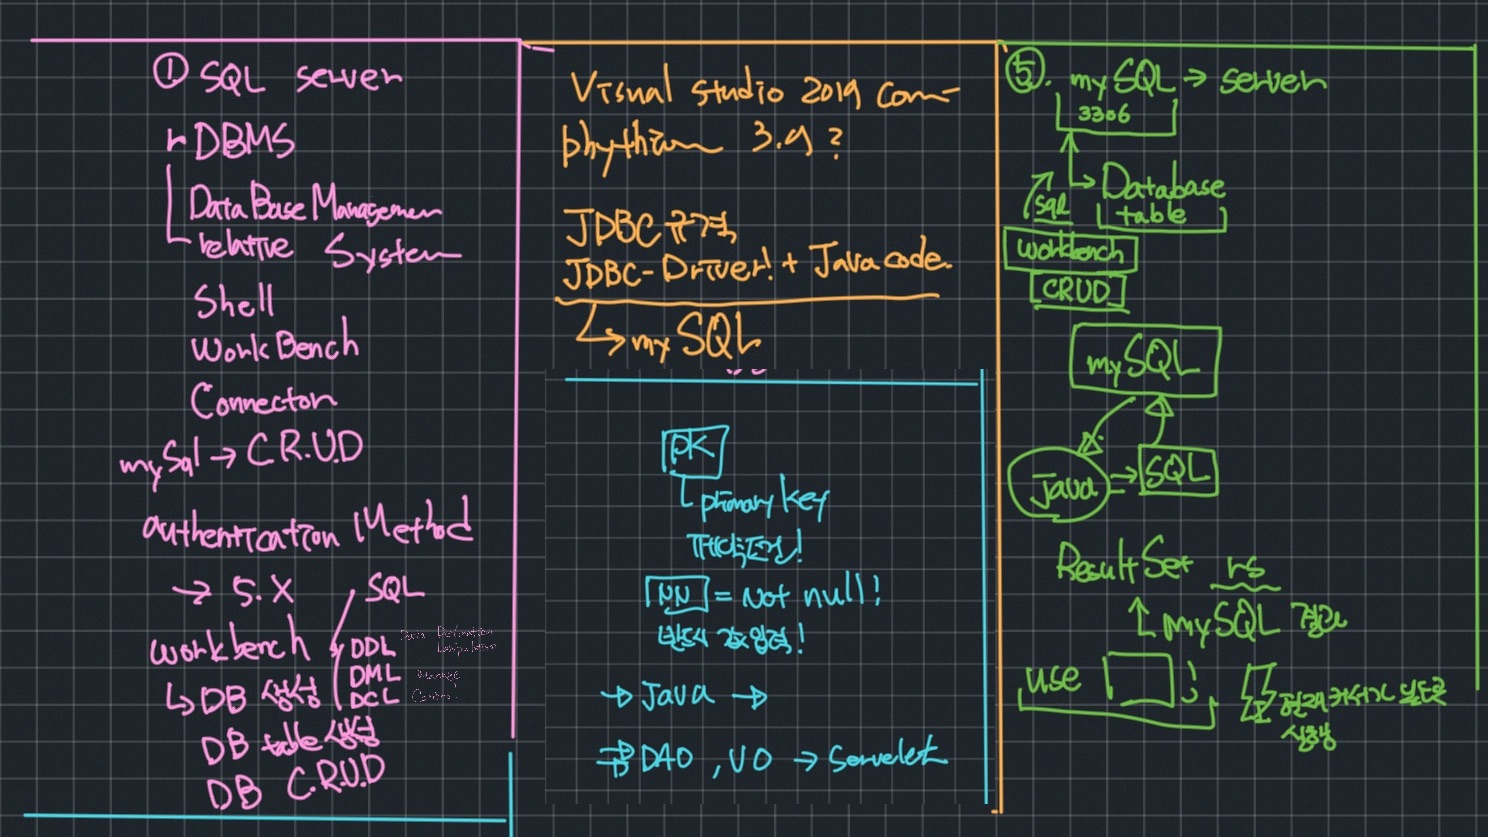 ① SQL server
DBMS
DataBase Managemen
relative System
Shell
WorkBench
Connector
mySql → C.R.U.D
authentication Method
→ 5.X
SQL
workbench
DDL
DML
DCL
↳ DB 생성
DB table 생성
DB C.R.U.D
Visual studio 2019 com-
phython 3.9?
JDBC 규격
JDBC-Driver! + Java code.
↳ my SQL
PK
primary key
NN = Not null!
반드시 값 입력!
→ Java →
⇒ DAO, VO → Servelet
⑤. mySQL → server
3306
sql
Database
table
workbench
CRUD
mySQL
Java → SQL
ResultSet rs
↑ mySQL 결과
use ;
현재 커서가 보도록
실행